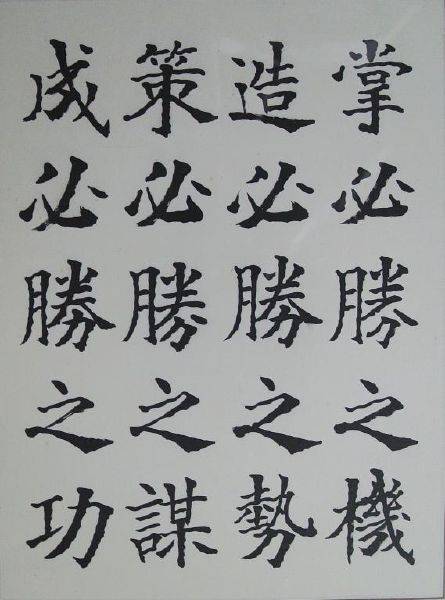 掌必勝之機
造必勝之勢
策必勝之謀
成必勝之功